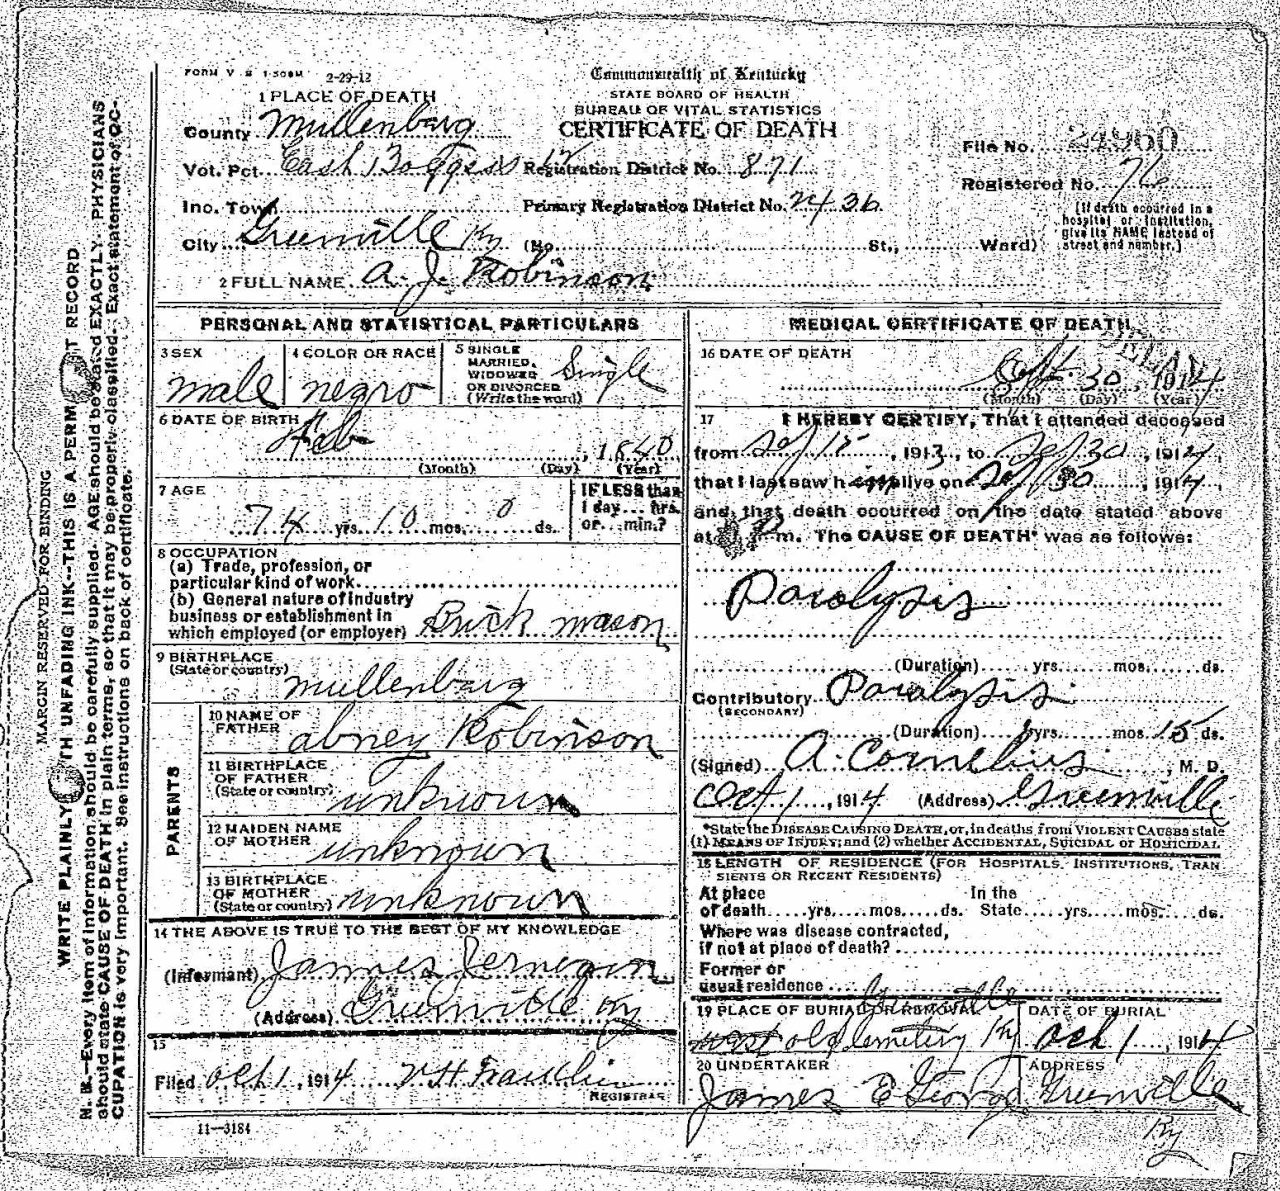 FORM V. S. 1-500M 2-29-12
Commonwealth of Kentucky
STATE BOARD OF HEALTH
BUREAU OF VITAL STATISTICS
CERTIFICATE OF DEATH
1 PLACE OF DEATH
County Mullenberg
Vot. Pct. East Boggess 12 Registration District No. 871
Inc. Town Primary Registration District No. 2436
City Greenville Ky (No. St., Ward)
File No. 24960
Registered No. 76
(If death occurred in a hospital or institution, give its NAME instead of street and number.)
2 FULL NAME A. J. Robinson
PERSONAL AND STATISTICAL PARTICULARS
3 SEX male
4 COLOR OR RACE negro
5 SINGLE MARRIED, WIDOWED OR DIVORCED (Write the word) Single
6 DATE OF BIRTH Feb , 1840
(Month) (Day) (Year)
7 AGE 74 yrs. 10 mos. 0 ds.
IF LESS than 1 day... hrs. or... min.?
8 OCCUPATION
(a) Trade, profession, or
particular kind of work
(b) General nature of industry
business or establishment in
which employed (or employer) Brick mason
9 BIRTHPLACE
(State or country) mullenberg
PARENTS
10 NAME OF FATHER abney Robinson
11 BIRTHPLACE OF FATHER (State or country) unknown
12 MAIDEN NAME OF MOTHER unknown
13 BIRTHPLACE OF MOTHER (State or country) unknown
14 THE ABOVE IS TRUE TO THE BEST OF MY KNOWLEDGE
(Informant) James
(Address) Greenville Ky
15
Filed Oct 1, 1914 Franklin
REGISTRAR
11-3184
MEDICAL CERTIFICATE OF DEATH
16 DATE OF DEATH
Sept 30, 1914
(Month) (Day) (Year)
17 I HEREBY CERTIFY, That I attended deceased
from Sep 15, 1913, to Sep 30, 1914,
that I last saw him alive on Sep 30, 1914,
and that death occurred on the date stated above
at P m. The CAUSE OF DEATH* was as follows:
Paralysis
(Duration) yrs. mos. ds.
Contributory Paralysis
(SECONDARY)
(Duration) yrs. mos. 15 ds.
(Signed) A. Cornelius, M. D.
Oct 1, 1914 (Address) Greenville
*State the DISEASE CAUSING DEATH, or, in deaths from VIOLENT CAUSES state
(1) MEANS OF INJURY; and (2) whether ACCIDENTAL, SUICIDAL or HOMICIDAL
18 LENGTH OF RESIDENCE (FOR HOSPITALS, INSTITUTIONS, TRAN
SIENTS OR RECENT RESIDENTS)
At place In the
of death yrs. mos. ds. State yrs. mos. ds.
Where was disease contracted,
if not at place of death?
Former or
usual residence
19 PLACE OF BURIAL OR REMOVAL Greenville
west old Cemetery Ky
DATE OF BURIAL
Oct 1, 1914
20 UNDERTAKER
James E George
ADDRESS
Greenville
Ky
MARGIN RESERVED FOR BINDING
WRITE PLAINLY WITH UNFADING INK--THIS IS A PERMANENT RECORD
N. B.--Every item of information should be carefully supplied. AGE should be stated EXACTLY. PHYSICIANS
should state CAUSE OF DEATH in plain terms, so that it may be properly classified. Exact statement of OC-
CUPATION is very important. See instructions on back of certificate.